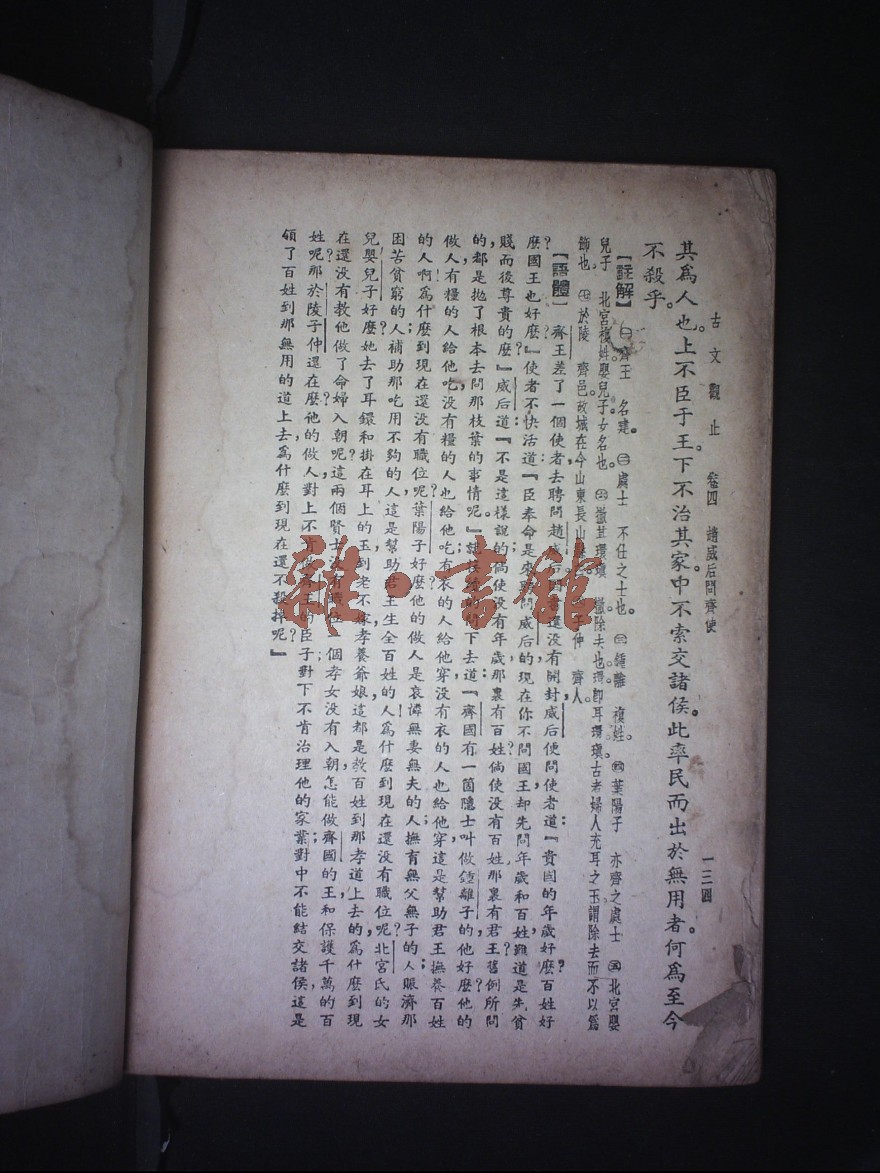 古文觀止 卷四 趙威后問齊使 一三四
其爲人也。上不臣于王。下不治其家。中不索交諸侯。此率民而出於無用者。何爲至今
不殺乎。
【註解】㊀齊王 名建。㊁處士 不仕之士也。㊂鍾離 複姓。㊃葉陽子 亦齊之處士㊄北宮嬰
兒子 北宮複姓。嬰兒子。女名也。㊅撤其環瑱 撤除去也。環卽耳環。瑱古者婦人充耳之玉。謂除去而不以爲
飾也。㊆於陵 齊邑。故城在今山東長山縣 子仲 齊人。
【語體】齊王差了一個使者去聘問趙威后書還沒有開封威后便問使者道:『貴國的年歲好麽?百姓好
麽?國王也好麽?』使者不快活道:『臣奉命是來聘問威后的,現在你不問國王,却先問年歲和百姓,難道是先貧
賤而後尊貴的麽?』威后道:『不是這樣說的;倘使沒有年歲,那裏有百姓?倘使沒有百姓,那裏有君王?舊例所問
的,都是拋了根本去問那枝葉的事情呢。』就接續的問下去道:『齊國有一箇隱士叫做鍾離子的,他好麽?他的
做人,有糧的人給他吃,沒有糧的人也給他吃;有衣的人給他穿,沒有衣的人也給他穿,這是幫助君王撫養百姓
的人啊!爲什麽到現在還沒有職位呢?葉陽子好麽?他的做人,是哀憐無妻無夫的人,撫育無父無子的人;賑濟那
困苦貧窮的人,補助那吃用不夠的人,這是幫助君王生全百姓的人!爲什麽到現在還沒有職位呢?北宮氏的女
兒嬰兒子好麽?她去了耳鐶和掛在耳上的玉,到老不嫁,孝養爺娘,這都是教百姓到那孝道上去的,爲什麽到現
在還沒有教他做了命婦入朝呢?這兩個賢士沒有職位,一個孝女沒有入朝,怎能做齊國的王,和保護千萬的百
姓呢?那於陵子仲還在麽?他的做人,對上不肯做君王的臣子;對下不肯治理他的家業;對中不能結交諸侯,這是
領了百姓到那無用的道上去,爲什麽到現在還不殺掉呢?』
雜·書館